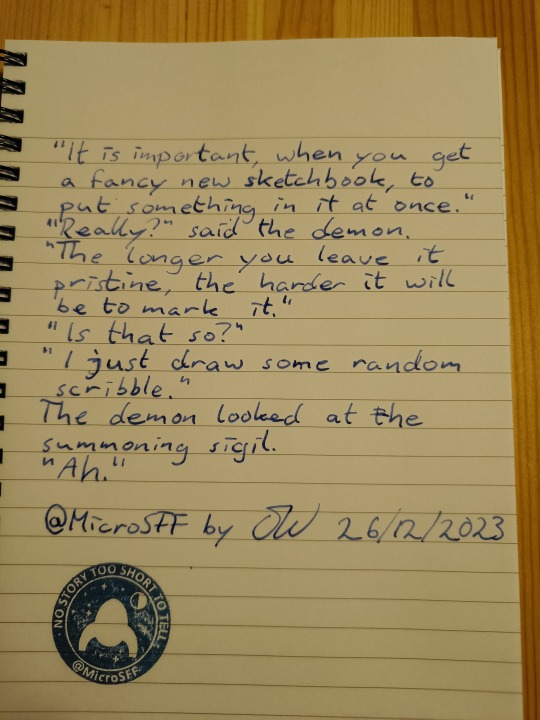 "It is important, when you get
a fancy new sketchbook, to
put something in it at once."
"Really?" said the demon.
"The longer you leave it
pristine, the harder it will
be to mark it."
"Is that so?"
"I just draw some random
scribble."
The demon looked at the
summoning sigil.
"Ah."
@MicroSFF by OW 26/12/2023
NO STORY TOO SHORT TO TELL
@MicroSFF